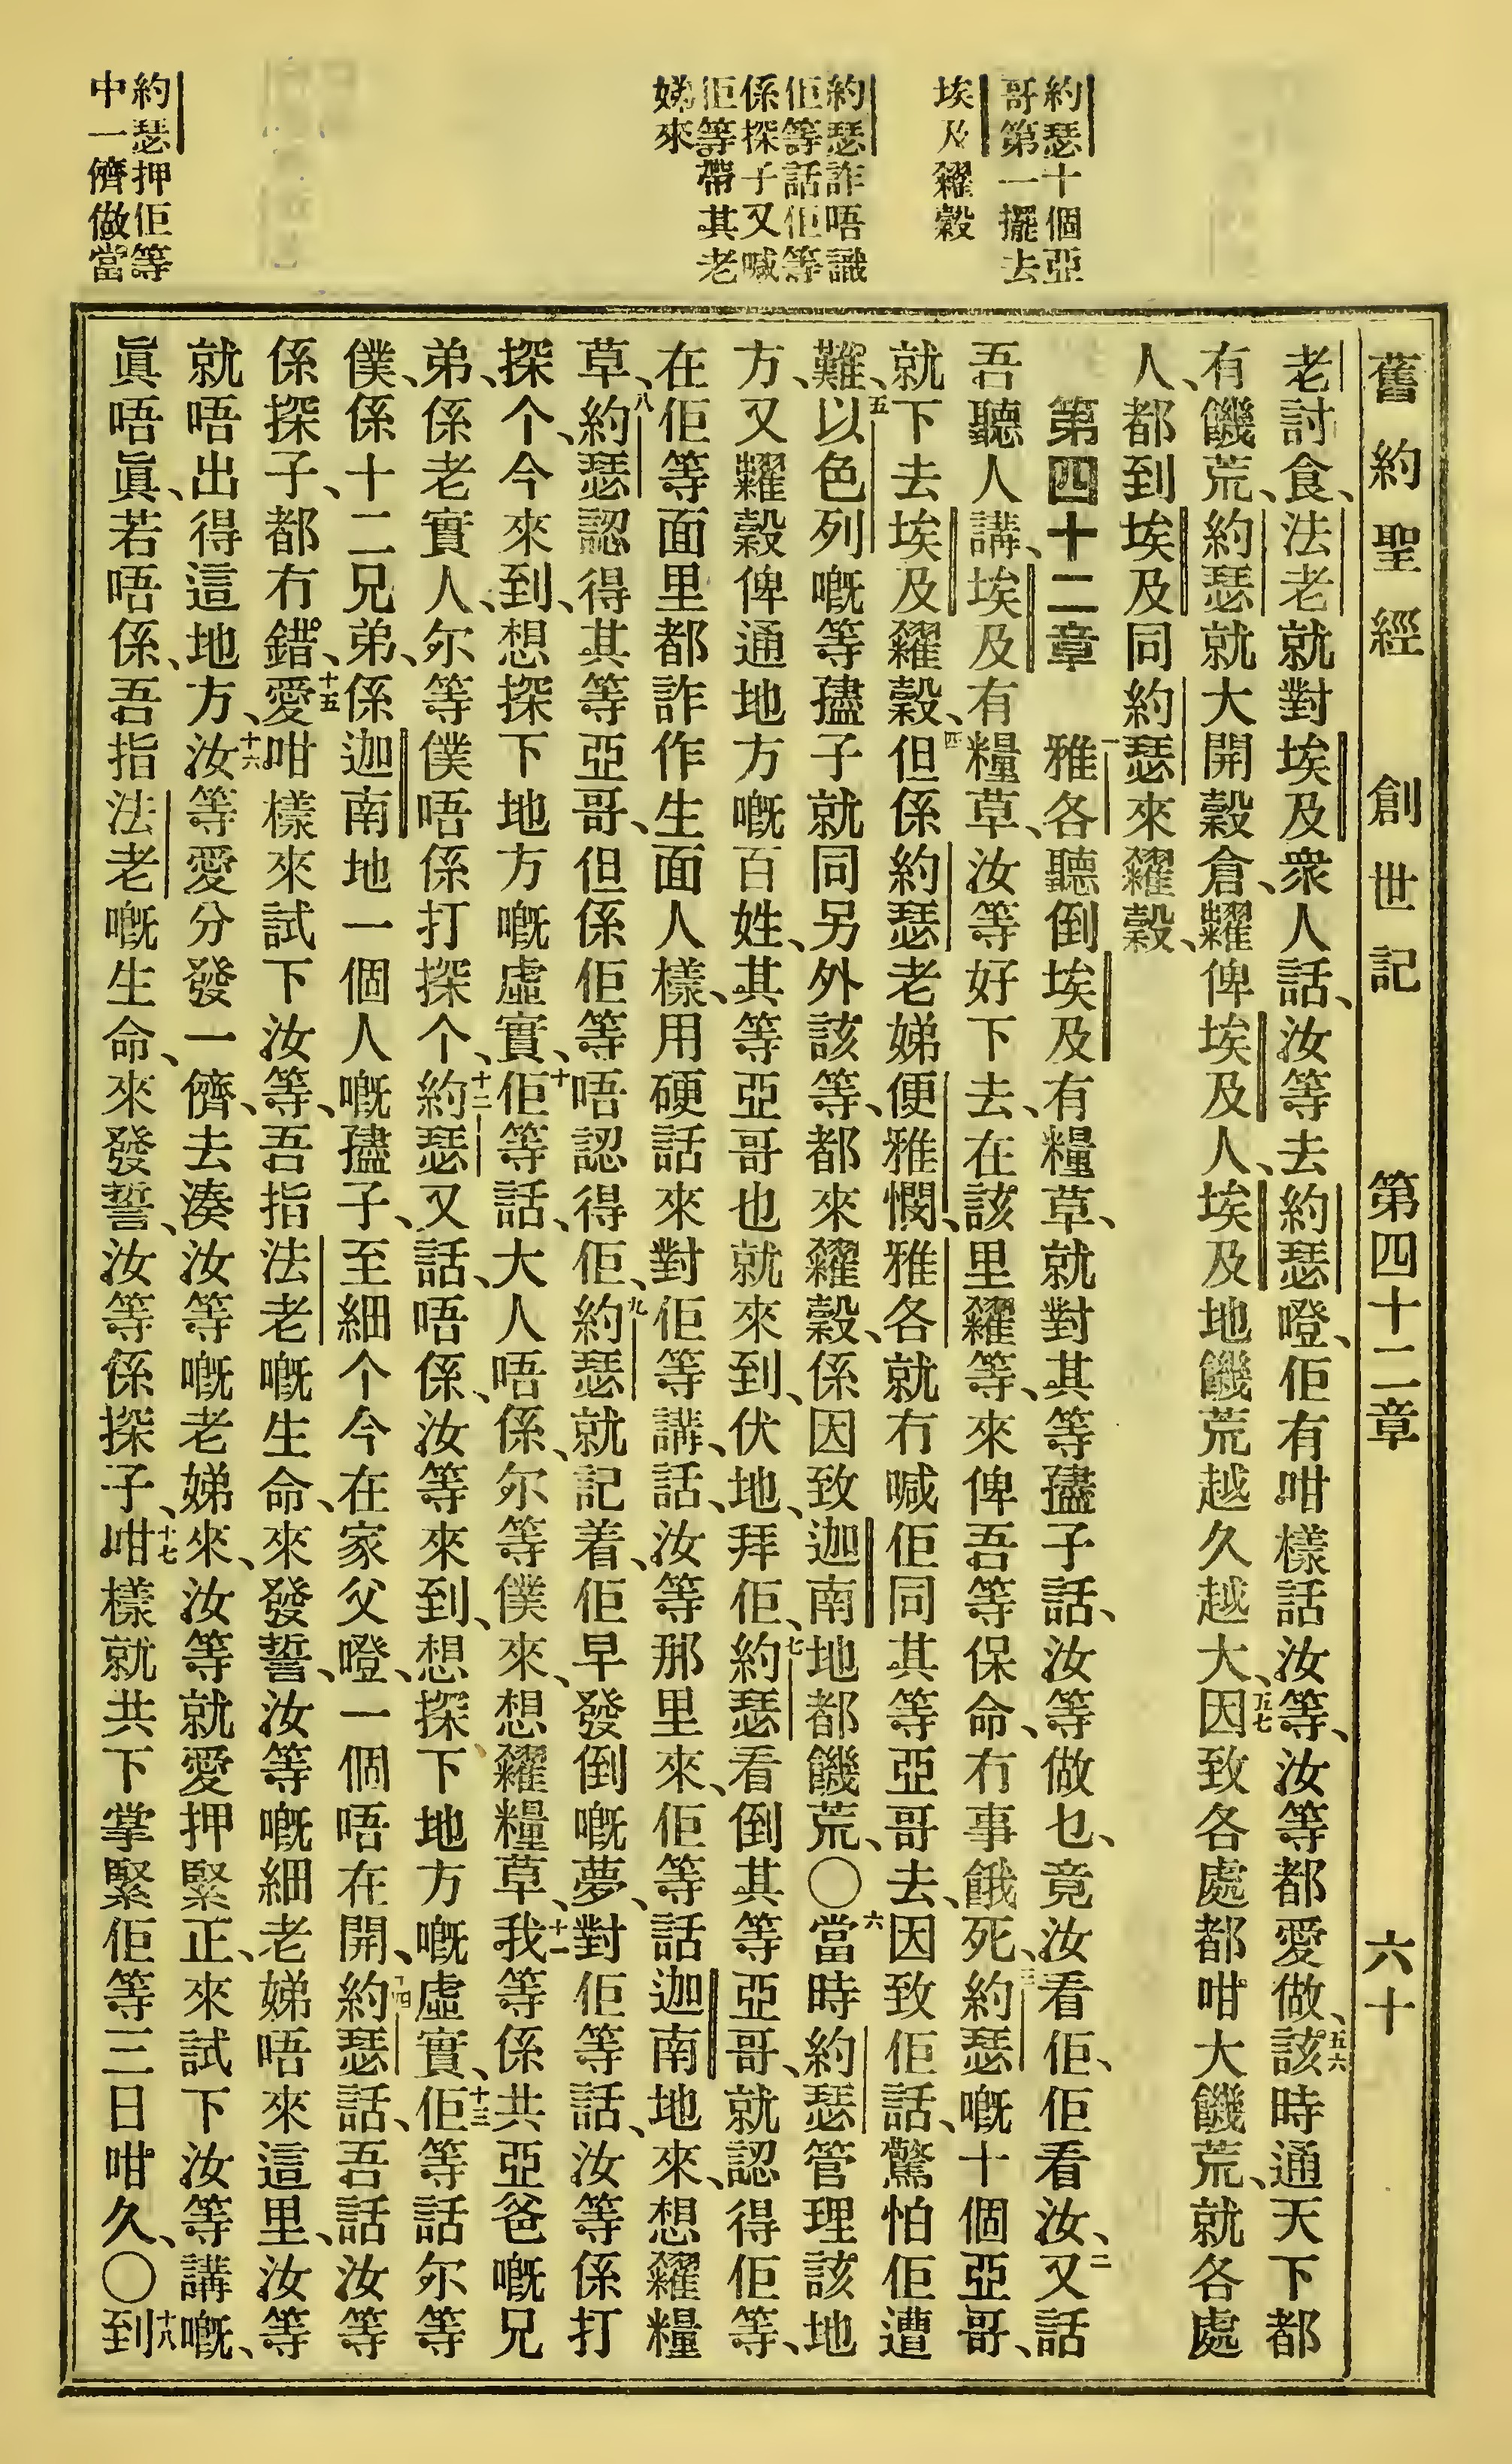 約瑟十個亞
哥第一擺去
埃及糴穀
約瑟詐唔識
佢等話佢等
係探子又喊
佢等帶其老
娣來
約瑟押佢等
中一儕做當
舊約聖經 創世記 第四十二章 六十
老討食、法老就對埃及衆人話、汝等去約瑟嶝、佢有咁樣話汝等、汝等都愛做、五六該時通天下都
有饑荒、約瑟就大開穀倉、糶俾埃及人、埃及地饑荒越久越大、五七因致各處都咁大饑荒、就各處
人、都到埃及同約瑟來糴穀、
第四十二章 一雅各聽倒埃及有糧草、就對其等孻子話、汝等做乜、竟汝看佢、佢看汝、二又話
吾聽人講、埃及有糧草、汝等好下去、在該里糴等、來俾吾等保命、冇事餓死、三約瑟嘅十個亞哥、
就下去埃及糴穀、四但係約瑟老娣便雅憫、雅各就冇喊佢同其等亞哥去、因致佢話、驚怕佢遭
難、五以色列嘅等孻子就同另外該等、都來糴穀、係因致迦南地都饑荒、〇六當時約瑟管理該地
方、又糶穀俾通地方嘅百姓、其等亞哥也就來到、伏地、拜佢、七約瑟看倒其等亞哥、就認得佢等、
在佢等面里都詐作生面人樣、用硬話來對佢等講、話、汝等那里來、佢等話迦南地來、想糴糧
草、八約瑟認得其等亞哥、但係佢等唔認得佢、九約瑟就記着、佢早發倒嘅夢、對佢等話、汝等係打
探个、今來到、想探下地方嘅虛實、十佢等話、大人唔係、尔等僕來、想糴糧草、十一我等係共亞爸嘅兄
弟、係老實人、尔等僕唔係打探个、十二約瑟又話、唔係、汝等來到、想探下地方嘅虛實、十三佢等話尔等
僕、係十二兄弟、係迦南地一個人嘅孻子、至細个今在家父嶝、一個唔在開、十四約瑟話、吾話汝等
係探子、都冇錯、十五愛咁樣來試下汝等、吾指法老嘅生命、來發誓、汝等嘅細老娣唔來這里、汝等
就唔出得這地方、十六汝等愛分發一儕、去湊汝等嘅老娣來、汝等就愛押緊正、來試下汝等講嘅、
眞唔眞、若唔係、吾指法老嘅生命、來發誓、汝等係探子、十七咁樣就共下掌緊佢等三日咁久、〇十八到